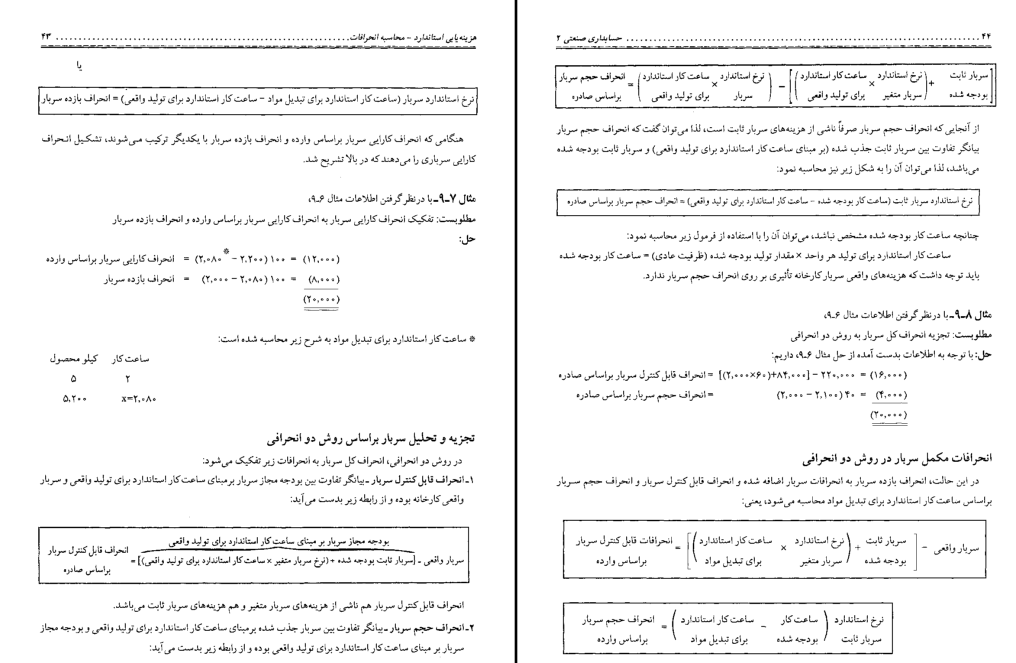 هزینه‌یابی استاندارد - محاسبه انحرافات ........ ۴۳
یا
نرخ استاندارد سربار (ساعت کار استاندارد برای تبدیل مواد - ساعت کار استاندارد برای تولید واقعی) = انحراف بازده سربار
هنگامی که انحراف کارایی سربار براساس وارده و انحراف بازده سربار با یکدیگر ترکیب می‌شوند، تشکیل انحراف
کارایی سرباری را می‌دهند که در بالا تشریح شد.
مثال ۷-۹- با درنظر گرفتن اطلاعات مثال ۶-۹،
مطلوبست: تفکیک انحراف کارایی سربار به انحراف کارایی سربار براساس وارده و انحراف بازده سربار
حل:
(۱۲,۰۰۰) = ۱۰۰ (۲,۲۰۰ - ۲,۰۸۰*) = انحراف کارایی سربار براساس وارده
(۸,۰۰۰) = ۱۰۰ (۲,۰۸۰ - ۲,۰۰۰) = انحراف بازده سربار
(۲۰,۰۰۰)
* ساعت کار استاندارد برای تبدیل مواد به شرح زیر محاسبه شده است:
ساعت کار کیلو محصول
۲ ۵
x=۲,۰۸۰ ۵,۲۰۰
تجزیه و تحلیل سربار براساس روش دو انحرافی
در روش دو انحرافی، انحراف کل سربار به انحرافات زیر تفکیک می‌شود:
۱-انحراف قابل کنترل سربار -بیانگر تفاوت بین بودجه مجاز سربار برمبنای ساعت کار استاندارد برای تولید واقعی و سربار
واقعی کارخانه بوده و از رابطه زیر بدست می‌آید:
بودجه مجاز سربار بر مبنای ساعت کار استاندارد برای تولید واقعی
سربار واقعی - [سربار ثابت بودجه شده + (نرخ سربار متغیر × ساعت کار استاندارد برای تولید واقعی)] = انحراف قابل کنترل سربار
براساس صادره
انحراف قابل کنترل سربار هم ناشی از هزینه‌های سربار متغیر و هم هزینه‌های سربار ثابت می‌باشد.
۲-انحراف حجم سربار -بیانگر تفاوت بین سربار جذب شده برمبنای ساعت کار استاندارد برای تولید واقعی و بودجه مجاز
سربار بر مبنای ساعت کار استاندارد برای تولید واقعی بوده و از رابطه زیر بدست می‌آید:
۴۴ ........ حسابداری صنعتی ۲
[سربار ثابت + (نرخ استاندارد × ساعت کار استاندارد)] - (نرخ استاندارد × ساعت کار استاندارد) = انحراف حجم سربار
بودجه شده سربار متغیر برای تولید واقعی سربار برای تولید واقعی براساس صادره
از آنجایی که انحراف حجم سربار صرفاً ناشی از هزینه‌های سربار ثابت است، لذا می‌توان گفت که انحراف حجم سربار
بیانگر تفاوت بین سربار ثابت جذب شده (بر مبنای ساعت کار استاندارد برای تولید واقعی) و سربار ثابت بودجه شده
می‌باشد، لذا می‌توان آن را به شکل زیر نیز محاسبه نمود:
نرخ استاندارد سربار ثابت (ساعت کار بودجه شده - ساعت کار استاندارد برای تولید واقعی) = انحراف حجم سربار براساس صادره
چنانچه ساعت کار بودجه شده مشخص نباشد، می‌توان آن را با استفاده از فرمول زیر محاسبه نمود:
ساعت کار استاندارد برای تولید هر واحد × مقدار تولید بودجه شده (ظرفیت عادی) = ساعت کار بودجه شده
باید توجه داشت که هزینه‌های واقعی سربار کارخانه تأثیری بر روی انحراف حجم سربار ندارد.
مثال ۸-۹- با درنظر گرفتن اطلاعات مثال ۶-۹،
مطلوبست: تجزیه انحراف کل سربار به روش دو انحرافی
حل: با توجه به اطلاعات بدست آمده از حل مثال ۶-۹، داریم:
(۱۶,۰۰۰) = ۲۲۰,۰۰۰ - [۸۴,۰۰۰+(۲,۰۰۰×۶۰)] = انحراف قابل کنترل سربار براساس صادره
(۴,۰۰۰) = ۴۰ (۲,۱۰۰ - ۲,۰۰۰) = انحراف حجم سربار براساس صادره
(۲۰,۰۰۰)
انحرافات مکمل سربار در روش دو انحرافی
در این حالت، انحراف بازده سربار به انحرافات سربار اضافه شده و انحراف قابل کنترل سربار و انحراف حجم سربار
براساس ساعت کار استاندارد برای تبدیل مواد محاسبه می‌شود، یعنی:
سربار واقعی - [سربار ثابت + (نرخ استاندارد × ساعت کار استاندارد)] = انحرافات قابل کنترل سربار
بودجه شده سربار متغیر برای تبدیل مواد براساس وارده
نرخ استاندارد (ساعت کار - ساعت کار استاندارد) = انحراف حجم سربار
سربار ثابت بودجه شده برای تبدیل مواد براساس وارده